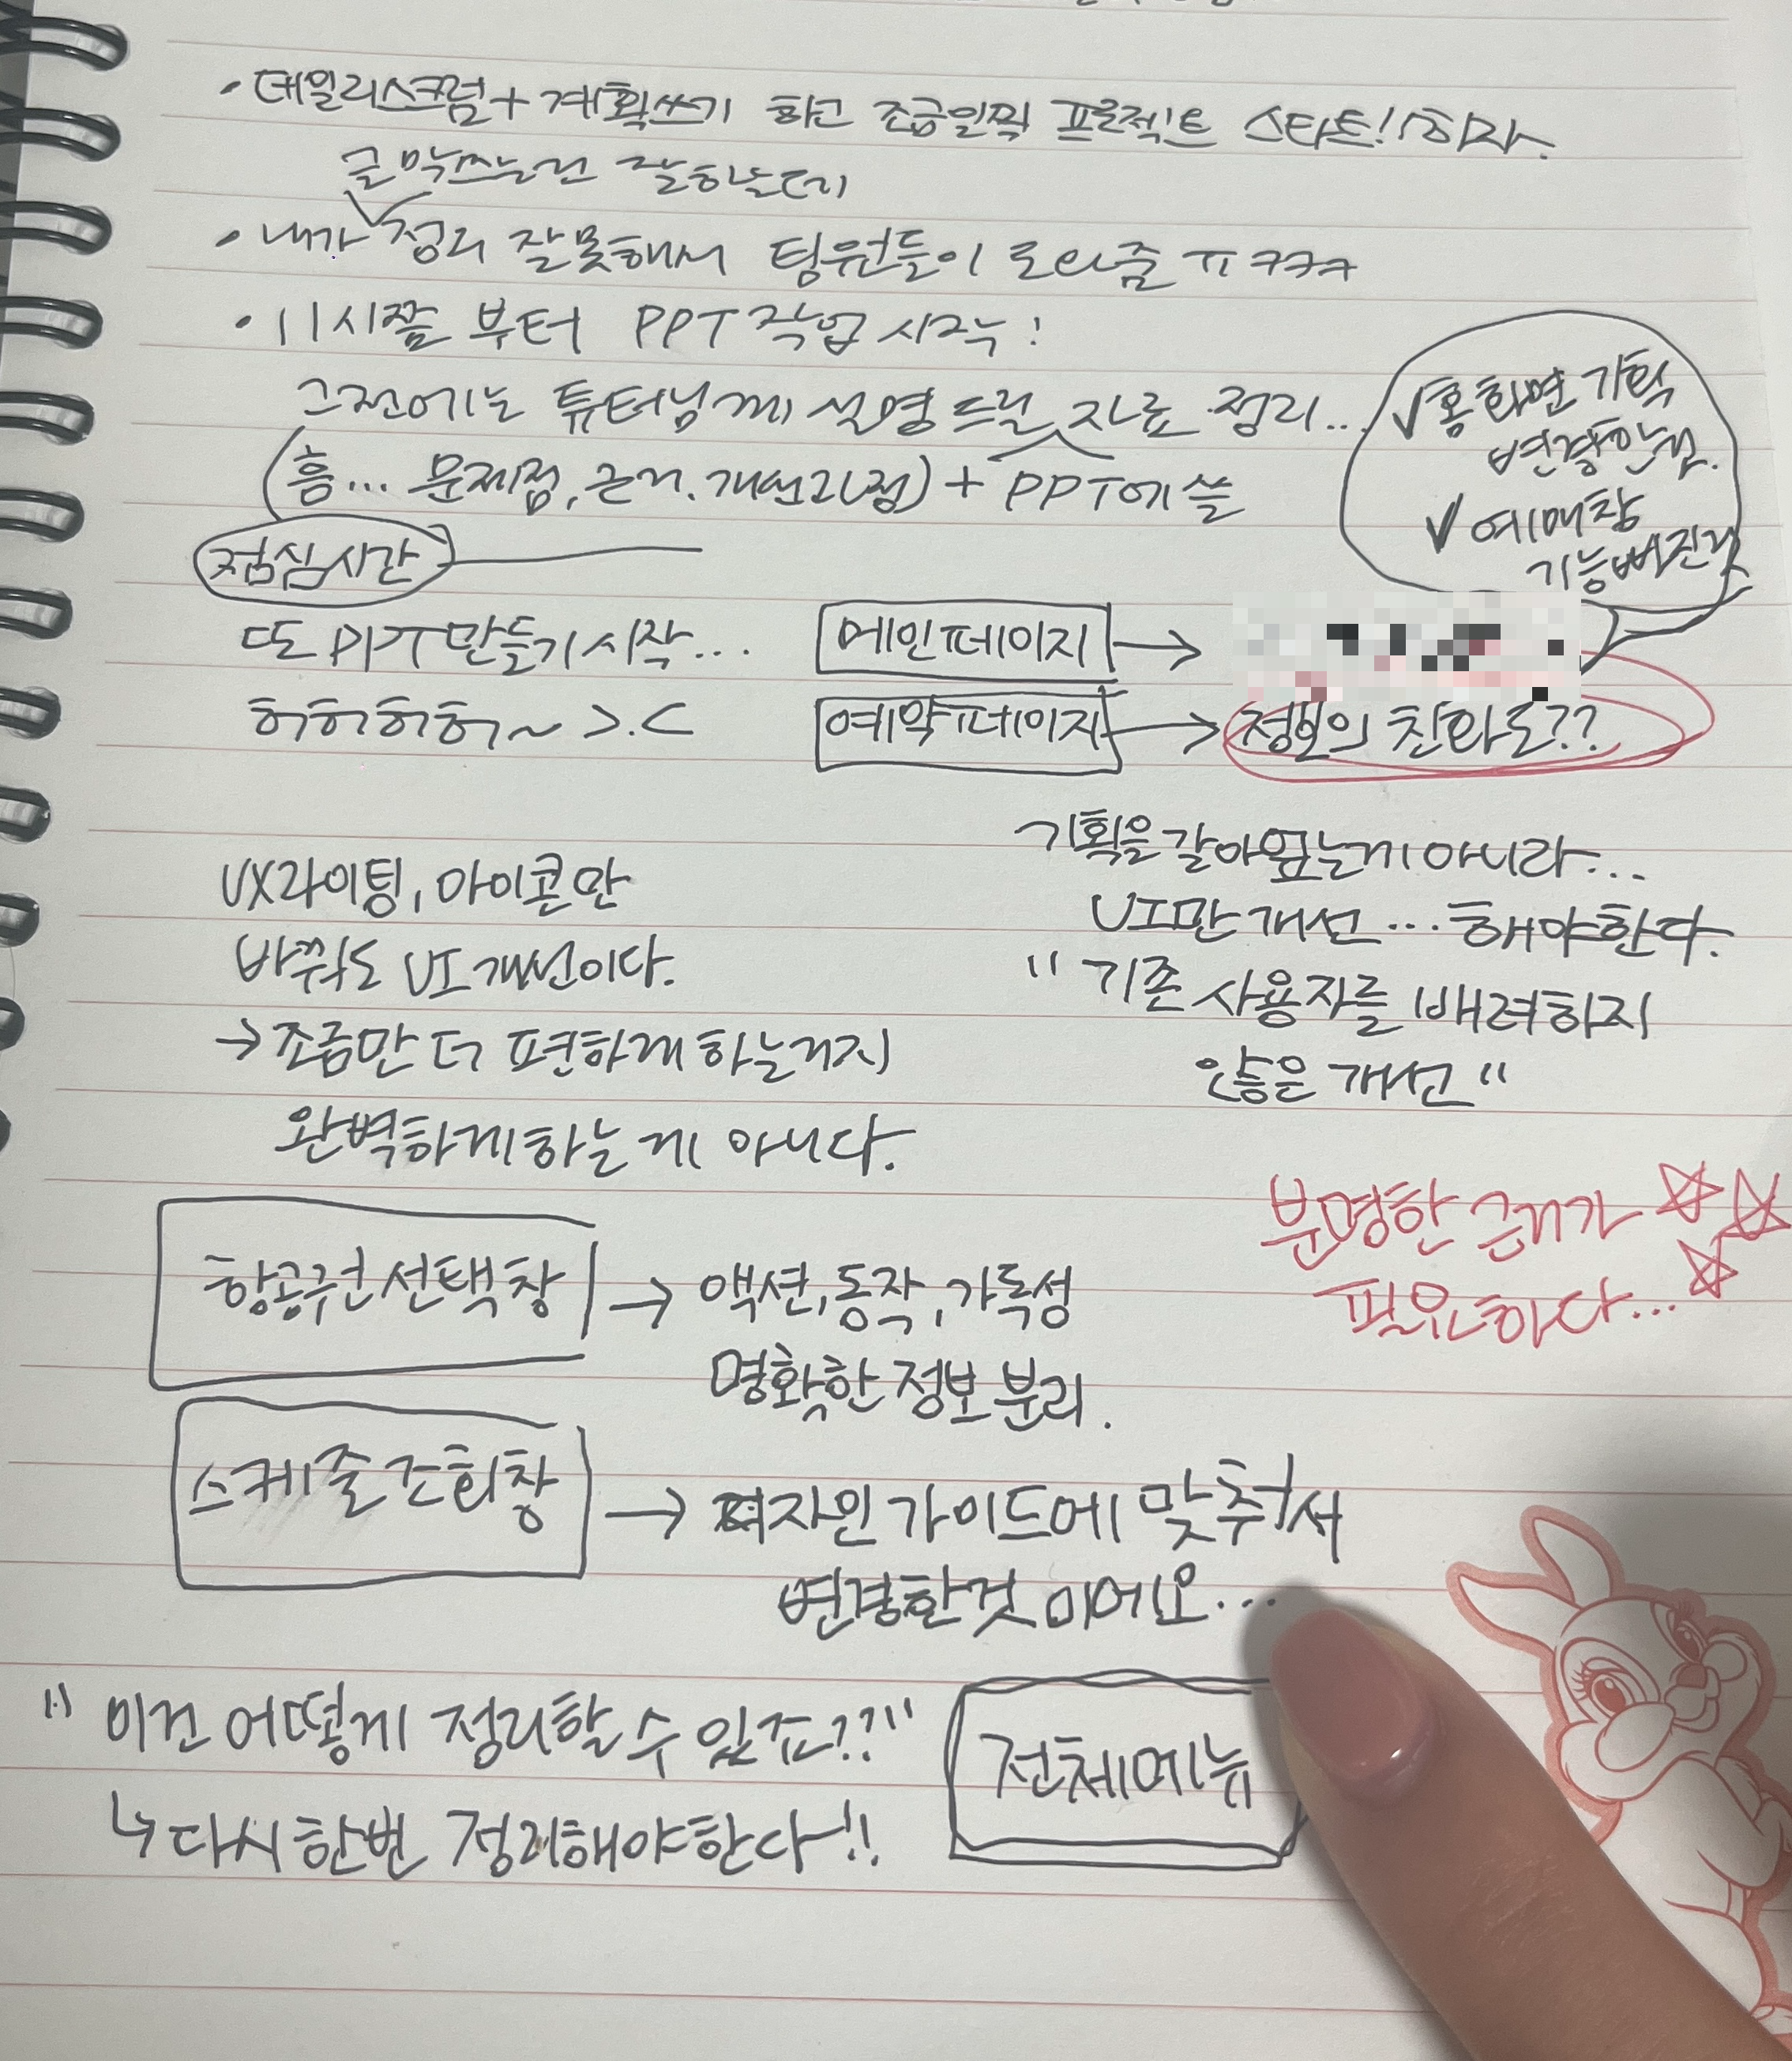 • 데일리스크럼 + 계획쓰기 하고 조금일찍 프로젝트 스타트! 하자.
글 막쓰는건 잘하는데
• 내가 정리 잘못해서 팀원들이 도와줌 ㅠㅋㅋㅋ
• 11시쯤 부터 PPT 작업 시작!
그전에는 튜터님께 설명드릴 자료 정리...
(흠... 문제점, 근거, 개선과정) + PPT에 쓸
✓홈화면 기획
변경한점.
✓예매창
기능빠진것
점심시간
또 PPT만들기 시작...
메인페이지 →
허허허허~ >.<
예약페이지 → 정보의 친화도??
UX라이팅, 아이콘만
바꿔도 UI개선이다.
→ 조금만 더 편하게 하는거지
완벽하게하는게 아니다.
기획을 갈아엎는게 아니라...
UI만 개선... 해야한다.
"기존 사용자를 배려하지
않은 개선"
분명한 근거가 ☆☆
필요하다... ☆
항공권선택창 → 액션, 동작, 가독성
명확한 정보 분리.
스케줄조회창 → 디자인 가이드에 맞춰서
변경한것 이에요...
"이건 어떻게 정리할 수 있죠??"
↳ 다시 한번 정리해야한다!!
전체메뉴